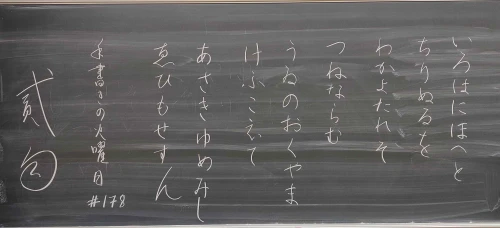 いろはにほへと
ちりぬるを
わかよたれそ
つねならむ
うゐのおくやま
けふこえて
あさきゆめみし
ゑひもせすん
手書きの火曜日 #178
貳